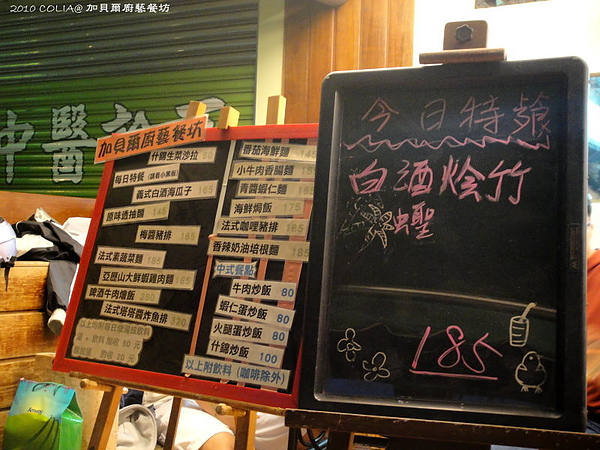 2010 COLIA@ 加貝爾廚藝餐坊
中醫
加貝爾廚藝餐坊
什錦生菜沙拉 80
每日特餐 (請看小黑板)
義式白酒海瓜子 165
原味透抽麵 145
梅醬豬排 165
法式素蔬菜麵 195
亞歷山大鮮蝦雞肉麵 185
啤酒牛肉燴飯 280
法式塔塔醬炸魚排 320
番茄海鮮麵 145
小牛肉香腸麵 155
青醬蝦仁麵 165
海鮮焗飯 175
法式咖哩豬排 185
香辣奶油培根麵 185
中式餐點
牛肉炒飯 80
蝦仁蛋炒飯 80
火腿蛋炒飯 80
什錦炒飯 100
以上附飲料 (咖啡除外)
今日特餐
白酒燴竹
蟶
185